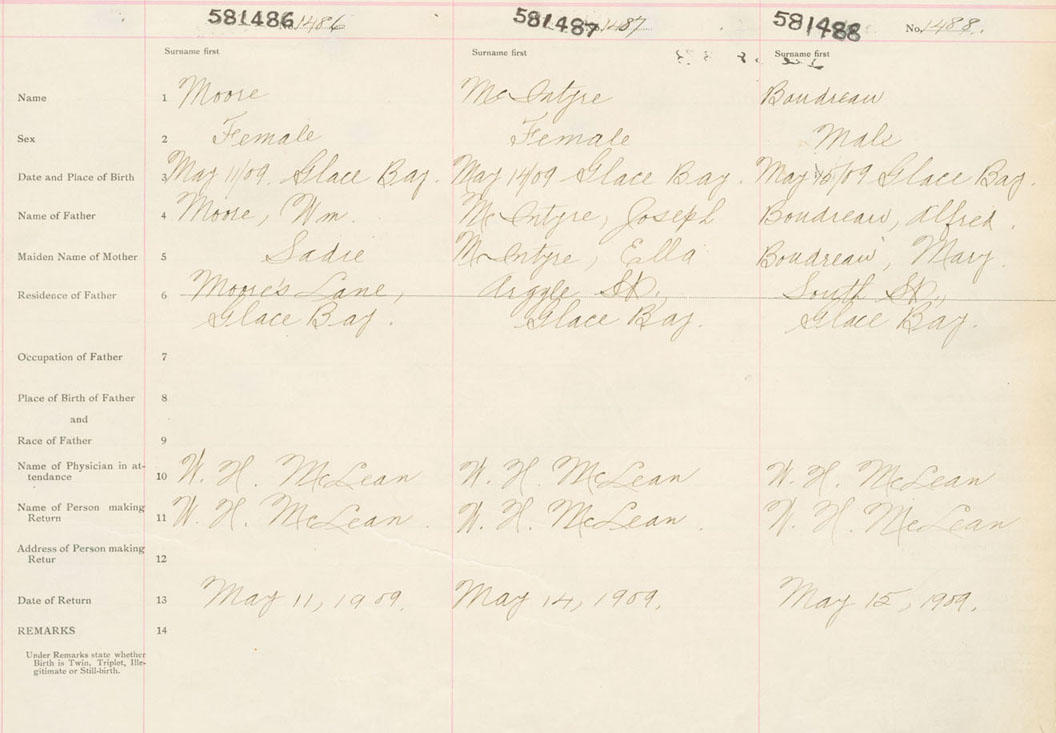 581486 No. 1486 581487 1487 581488 No. 1488.
Surname first Surname first Surname first
Name 1 Moore McIntyre Boudreau
Sex 2 Female Female Male
Date and Place of Birth 3 May 11/09. Glace Bay. May 14/09 Glace Bay. May 15/09 Glace Bay.
Name of Father 4 Moore, Wm. McIntyre, Joseph Boudreau, Alfred.
Maiden Name of Mother 5 Sadie McIntyre, Ella Boudreau, Mary.
Residence of Father 6 Moore's Lane, Argyle St., South St.,
Glace Bay. Glace Bay. Glace Bay.
Occupation of Father 7
Place of Birth of Father 8
and
Race of Father 9
Name of Physician in at-
tendance 10 W. H. McLean W. H. McLean W. H. McLean
Name of Person making
Return 11 W. H. McLean. W. H. McLean. W. H. McLean
Address of Person making
Retur 12
Date of Return 13 May 11, 1909. May 14, 1909. May 15, 1909.
REMARKS 14
Under Remarks state whether
Birth is Twin, Triplet, Ille-
gitimate or Still-birth.